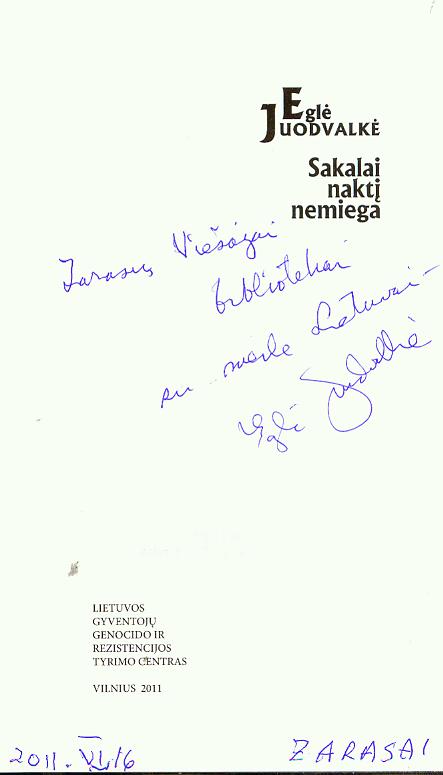 Eglė
JUODVALKĖ
Sakalai
naktį
nemiega
Zarasų Viešajai
bibliotekai
su meile Lietuvai –
Eglė Juodvalkė
LIETUVOS
GYVENTOJŲ
GENOCIDO IR
REZISTENCIJOS
TYRIMO CENTRAS
VILNIUS 2011
2011.VI.16 ZARASAI